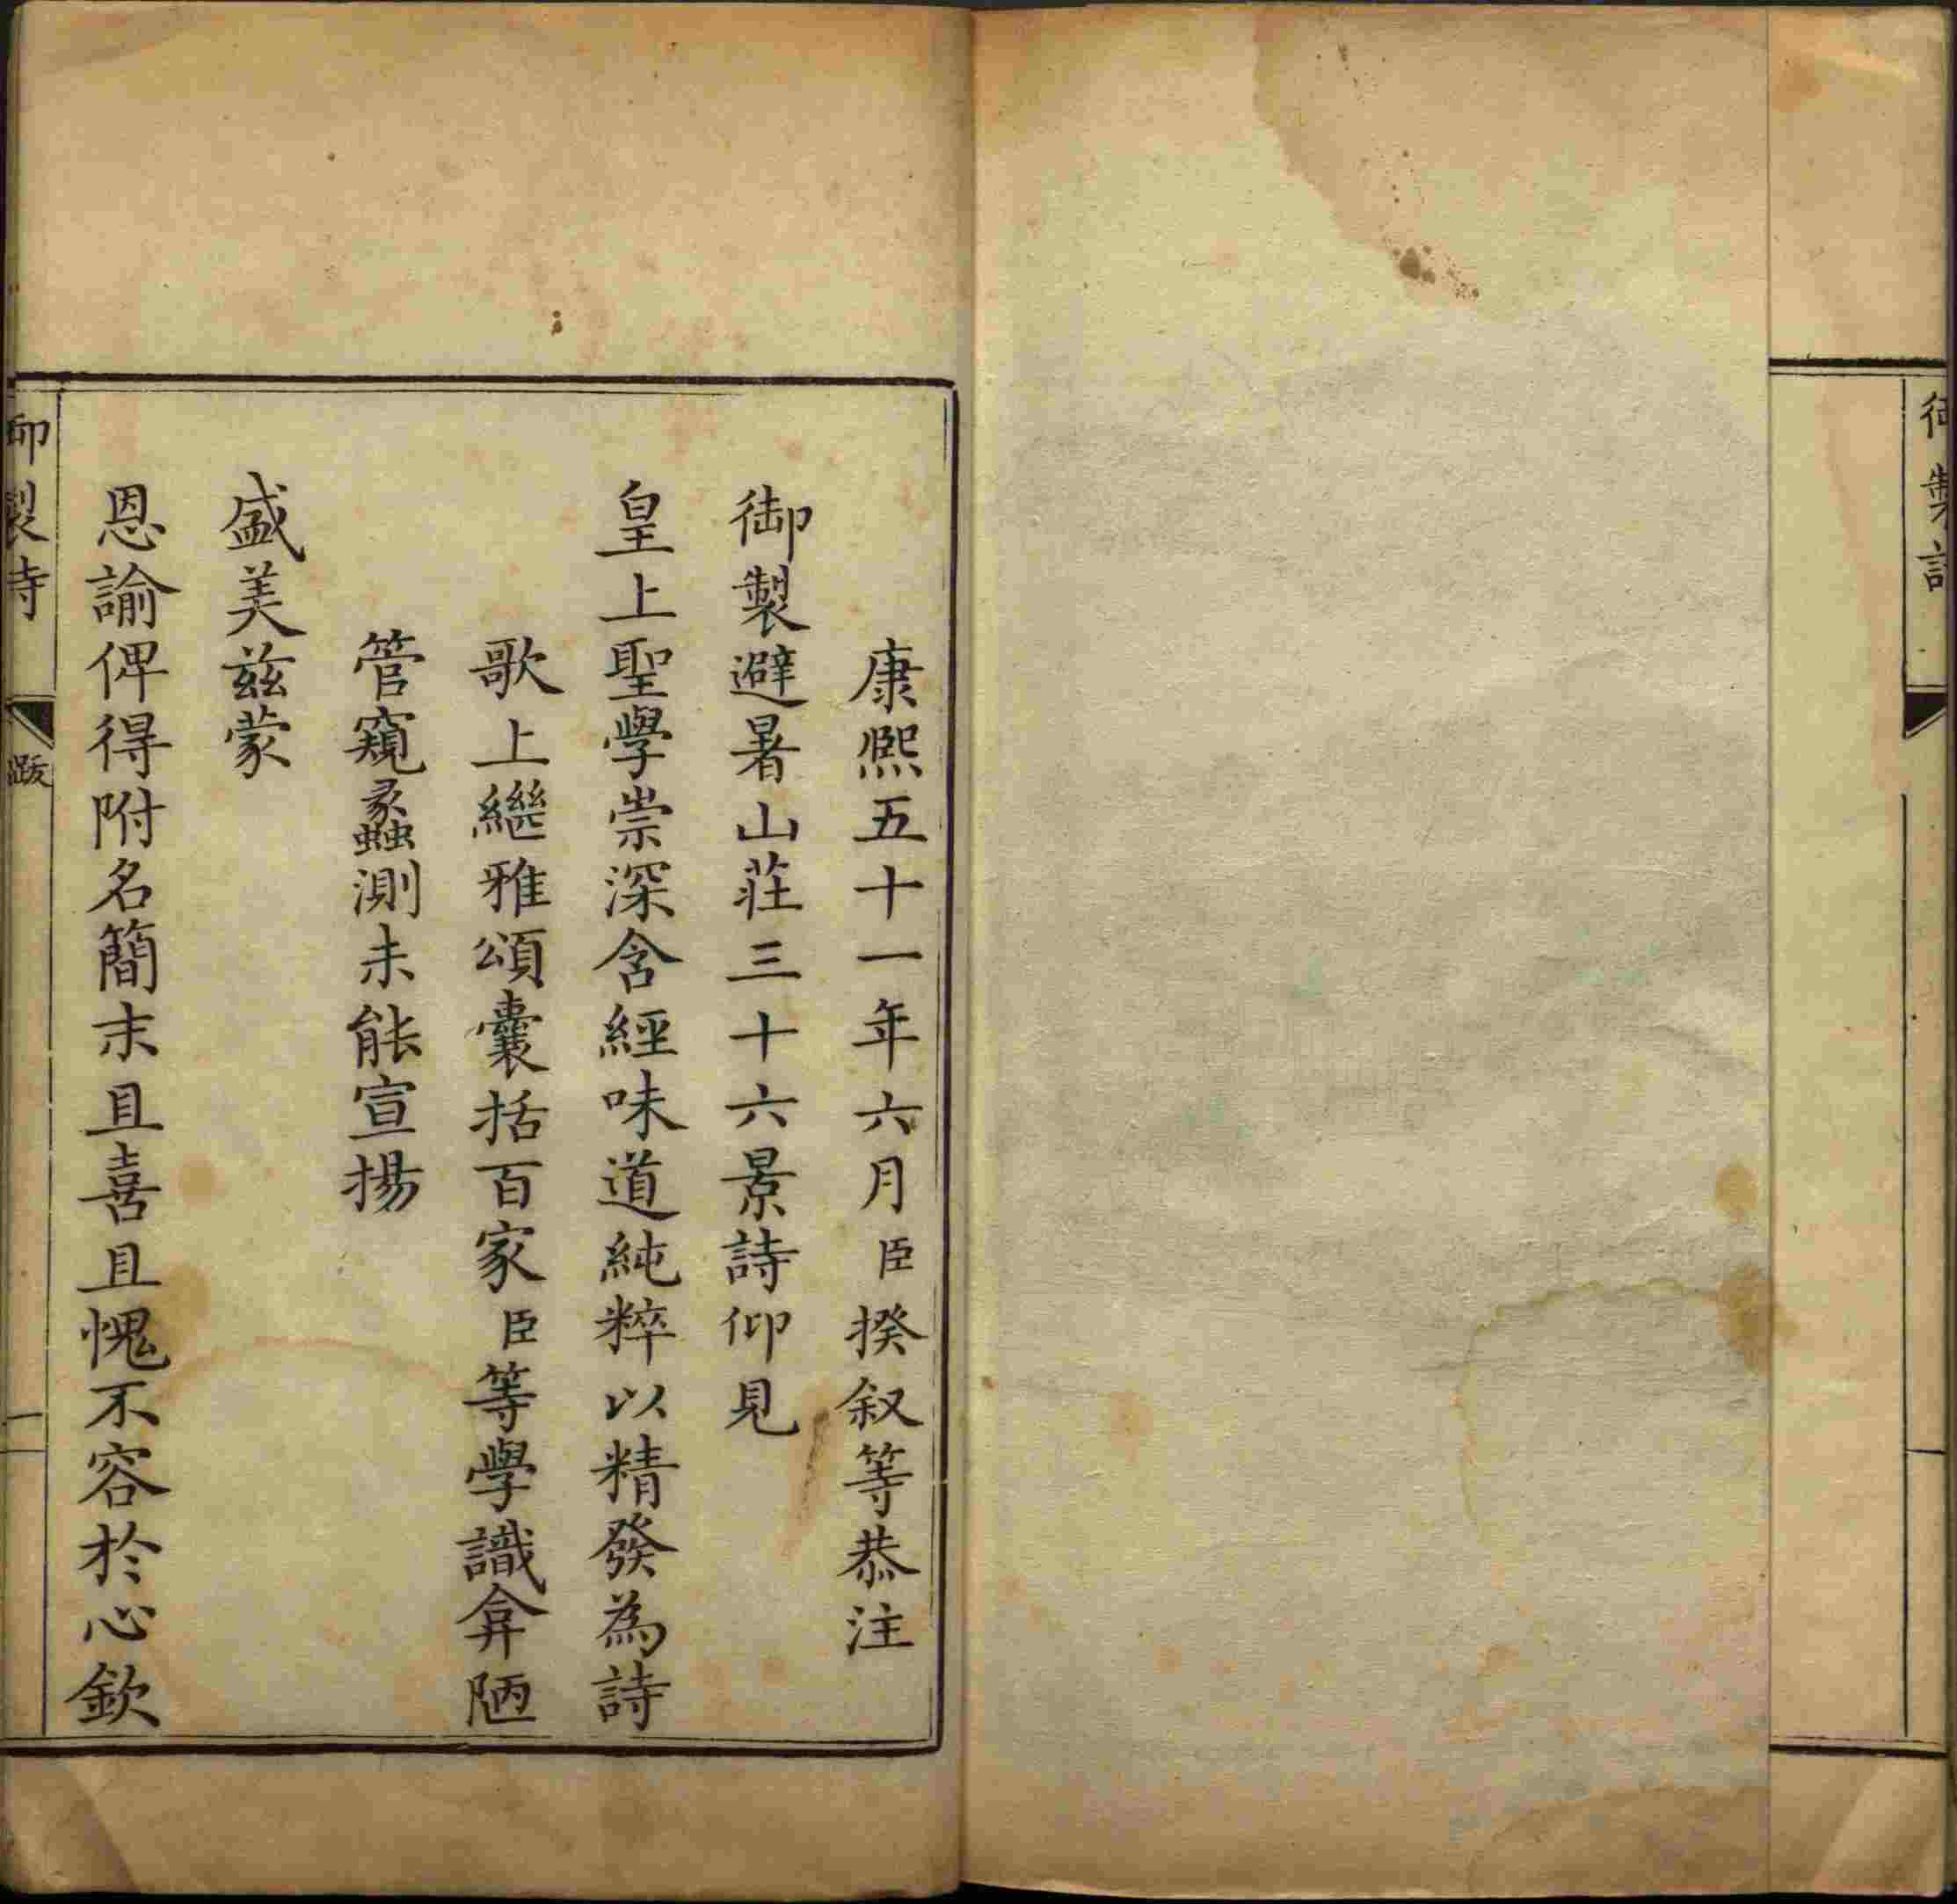 康熙五十一年六月臣揆叙等恭注
御製避暑山莊三十六景詩仰見
皇上聖學崇深含經味道純粹以精發為詩
歌上繼雅頌囊括百家臣等學識弇陋
管窺蠡測未能宣揚
盛美茲蒙
恩諭俾得附名簡末且喜且愧不容於心欽
御製詩
跋
御製詩